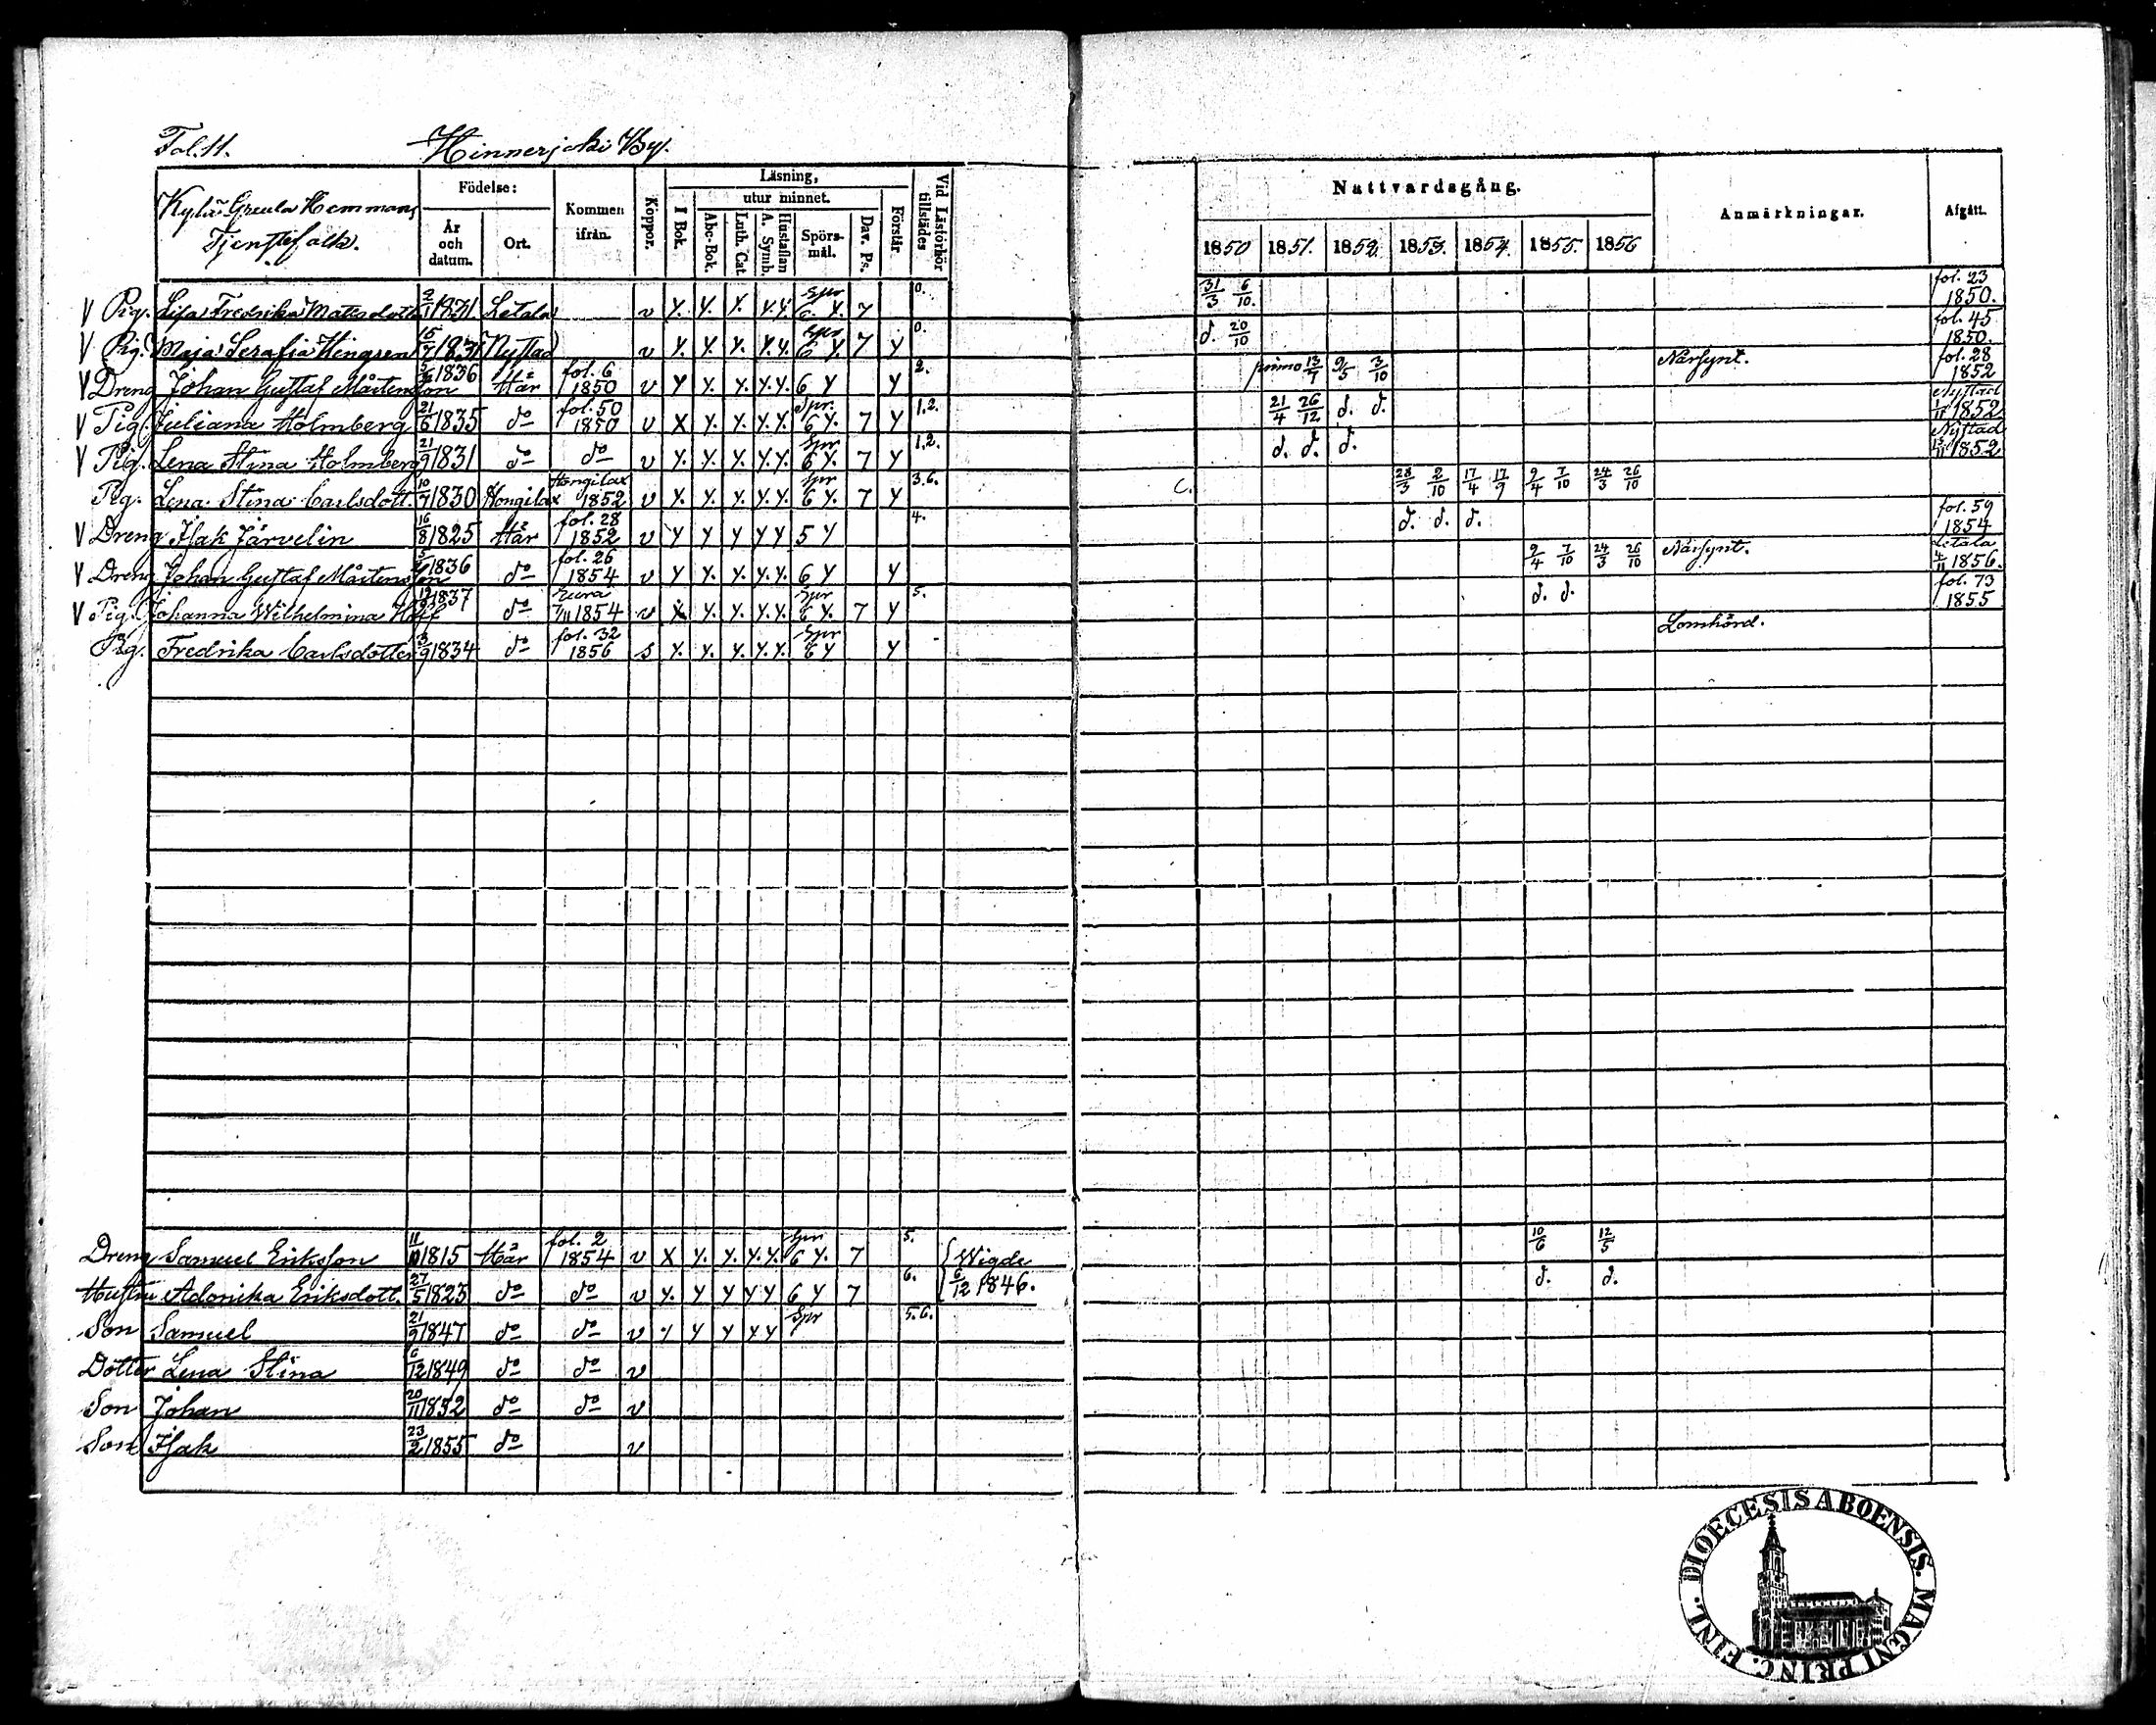 Fol. 11. Hinnerjoki By.
Kylä Greula Hemmans Tjenstefolk.
Födelse: År och datum. Ort. Kommen ifrån. Koppor. Läsning, I Bok. utur minnet. Abc-Bok. Luth. Cat. A. Symb. Hustaflan Spörsmål. Dav. Ps. Förstår. Vid Läsförhör tillstädes
Nattvardsgång. 1850 1851. 1852. 1853. 1854. 1855. 1856 Anmärkningar. Afgått.
V Pig. Lisa Fredrika Mattsdotter 1831 Letala v Y. Y. Y. Y.Y. Spr 6 Y. 7 0. 31/3 6/10. fol. 23 1850.
V Pig. Maja Serafia Hengren 1831 Nystad v Y. Y. Y. Y.Y. Spr 6 Y. 7 Y 0. d. 20/10 fol. 45 1850.
V Dreng Johan Gustaf Mårtensson 1836 Här fol. 6 1850 v Y Y. Y. Y.Y. 6 Y Y 2. primo 13/7 9/5 3/10 Närsynt. fol. 28 1852
V Pig. Juliana Holmberg 21/6 1835 do fol. 50 1850 v X Y. Y. Y.Y. Spr. 6 Y. 7 Y 1.2. 21/4 26/12 d. d. Nystad 1/11 1852
V Pig. Lena Stina Holmberg 21/9 1831 do do v Y. Y. Y. Y.Y. Spr 6 Y. 7 Y 1.2. d. d. d. Nystad 13/11 1852
Pig. Lena Stina Carlsdott. 10/7 1830 Hongilax Hongilax 1852 v Y. Y. Y. Y.Y. Spr 6 Y. 7 Y 3.6. C. 28/3 2/10 17/4 17/9 9/4 7/10 24/3 26/10
V Dreng Isak Järvelin 16/8 1825 Här fol. 28 1852 v Y Y Y Y Y 5 Y 4. d. d. d. fol. 59 1854
V Dreng Johan Gustaf Mårtensson 1836 do fol. 26 1854 v Y Y. Y. Y.Y. 6 Y Y 9/4 7/10 24/3 26/10 Närsynt. Letala 4/11 1856.
V Pig. Johanna Wilhelmina Hoff 1837 do Eura 7/11 1854 v X Y. Y. Y.Y. Spr 6 Y. 7 Y 5. d. d. fol. 73 1855
Pig. Fredrika Carlsdotter 3/9 1834 do fol. 32 1856 s Y. Y. Y. Y.Y. Spr 6 Y Y Lomhörd.
Dreng Samuel Eriksson 1815 Här fol. 2 1854 v X Y. Y. Y.Y. Spr 6 Y. 7 5. Wigde 10/6 12/5
Hustru Adonika Eriksdott. 27/5 1823 do do v Y. Y Y Y Y 6 Y 7 6. 6/12 1846. d. d.
Son Samuel 21/9 1847 do do v Y Y Y Y Y Spr 5.6.
Dotter Lena Stina 6/12 1849 do do v
Son Johan 20/11 1852 do do v
Son Isak 23/2 1855 do v
DIOECESIS ABOENSIS. MAGNI PRINC. FINL.